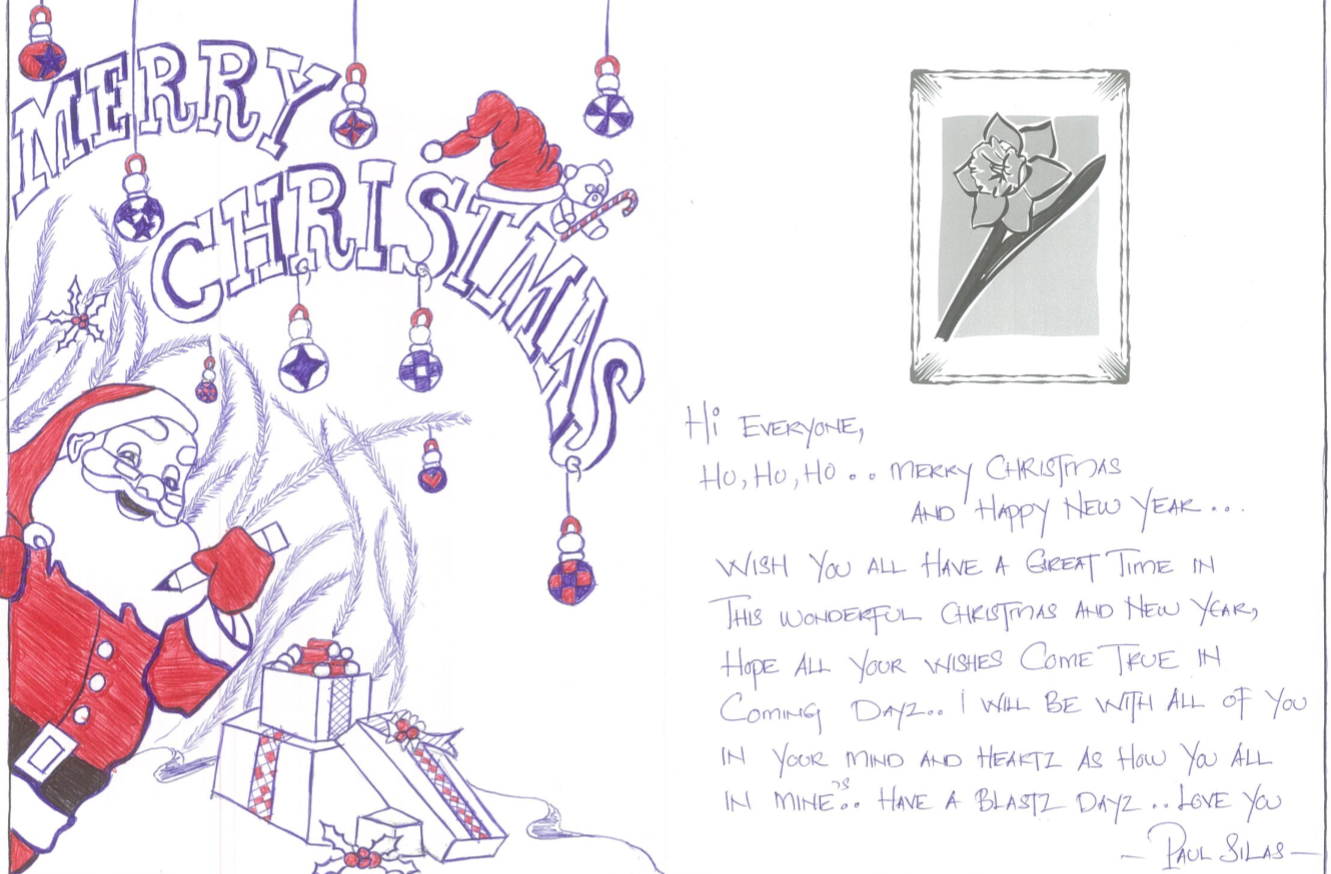 MERRY
CHRISTMAS
Hi EVERYONE,
HO, HO, HO .. MERRY CHRISTMAS
AND HAPPY NEW YEAR ...
WISH YOU ALL HAVE A GREAT TIME IN
THIS WONDERFUL CHRISTMAS AND NEW YEAR,
HOPE ALL YOUR WISHES COME TRUE IN
COMING DAYZ.. I WILL BE WITH ALL OF YOU
IN YOUR MIND AND HEARTZ AS HOW YOU ALL
IN MINE'S.. HAVE A BLASTZ DAYZ .. LOVE YOU
— PAUL SILAS —